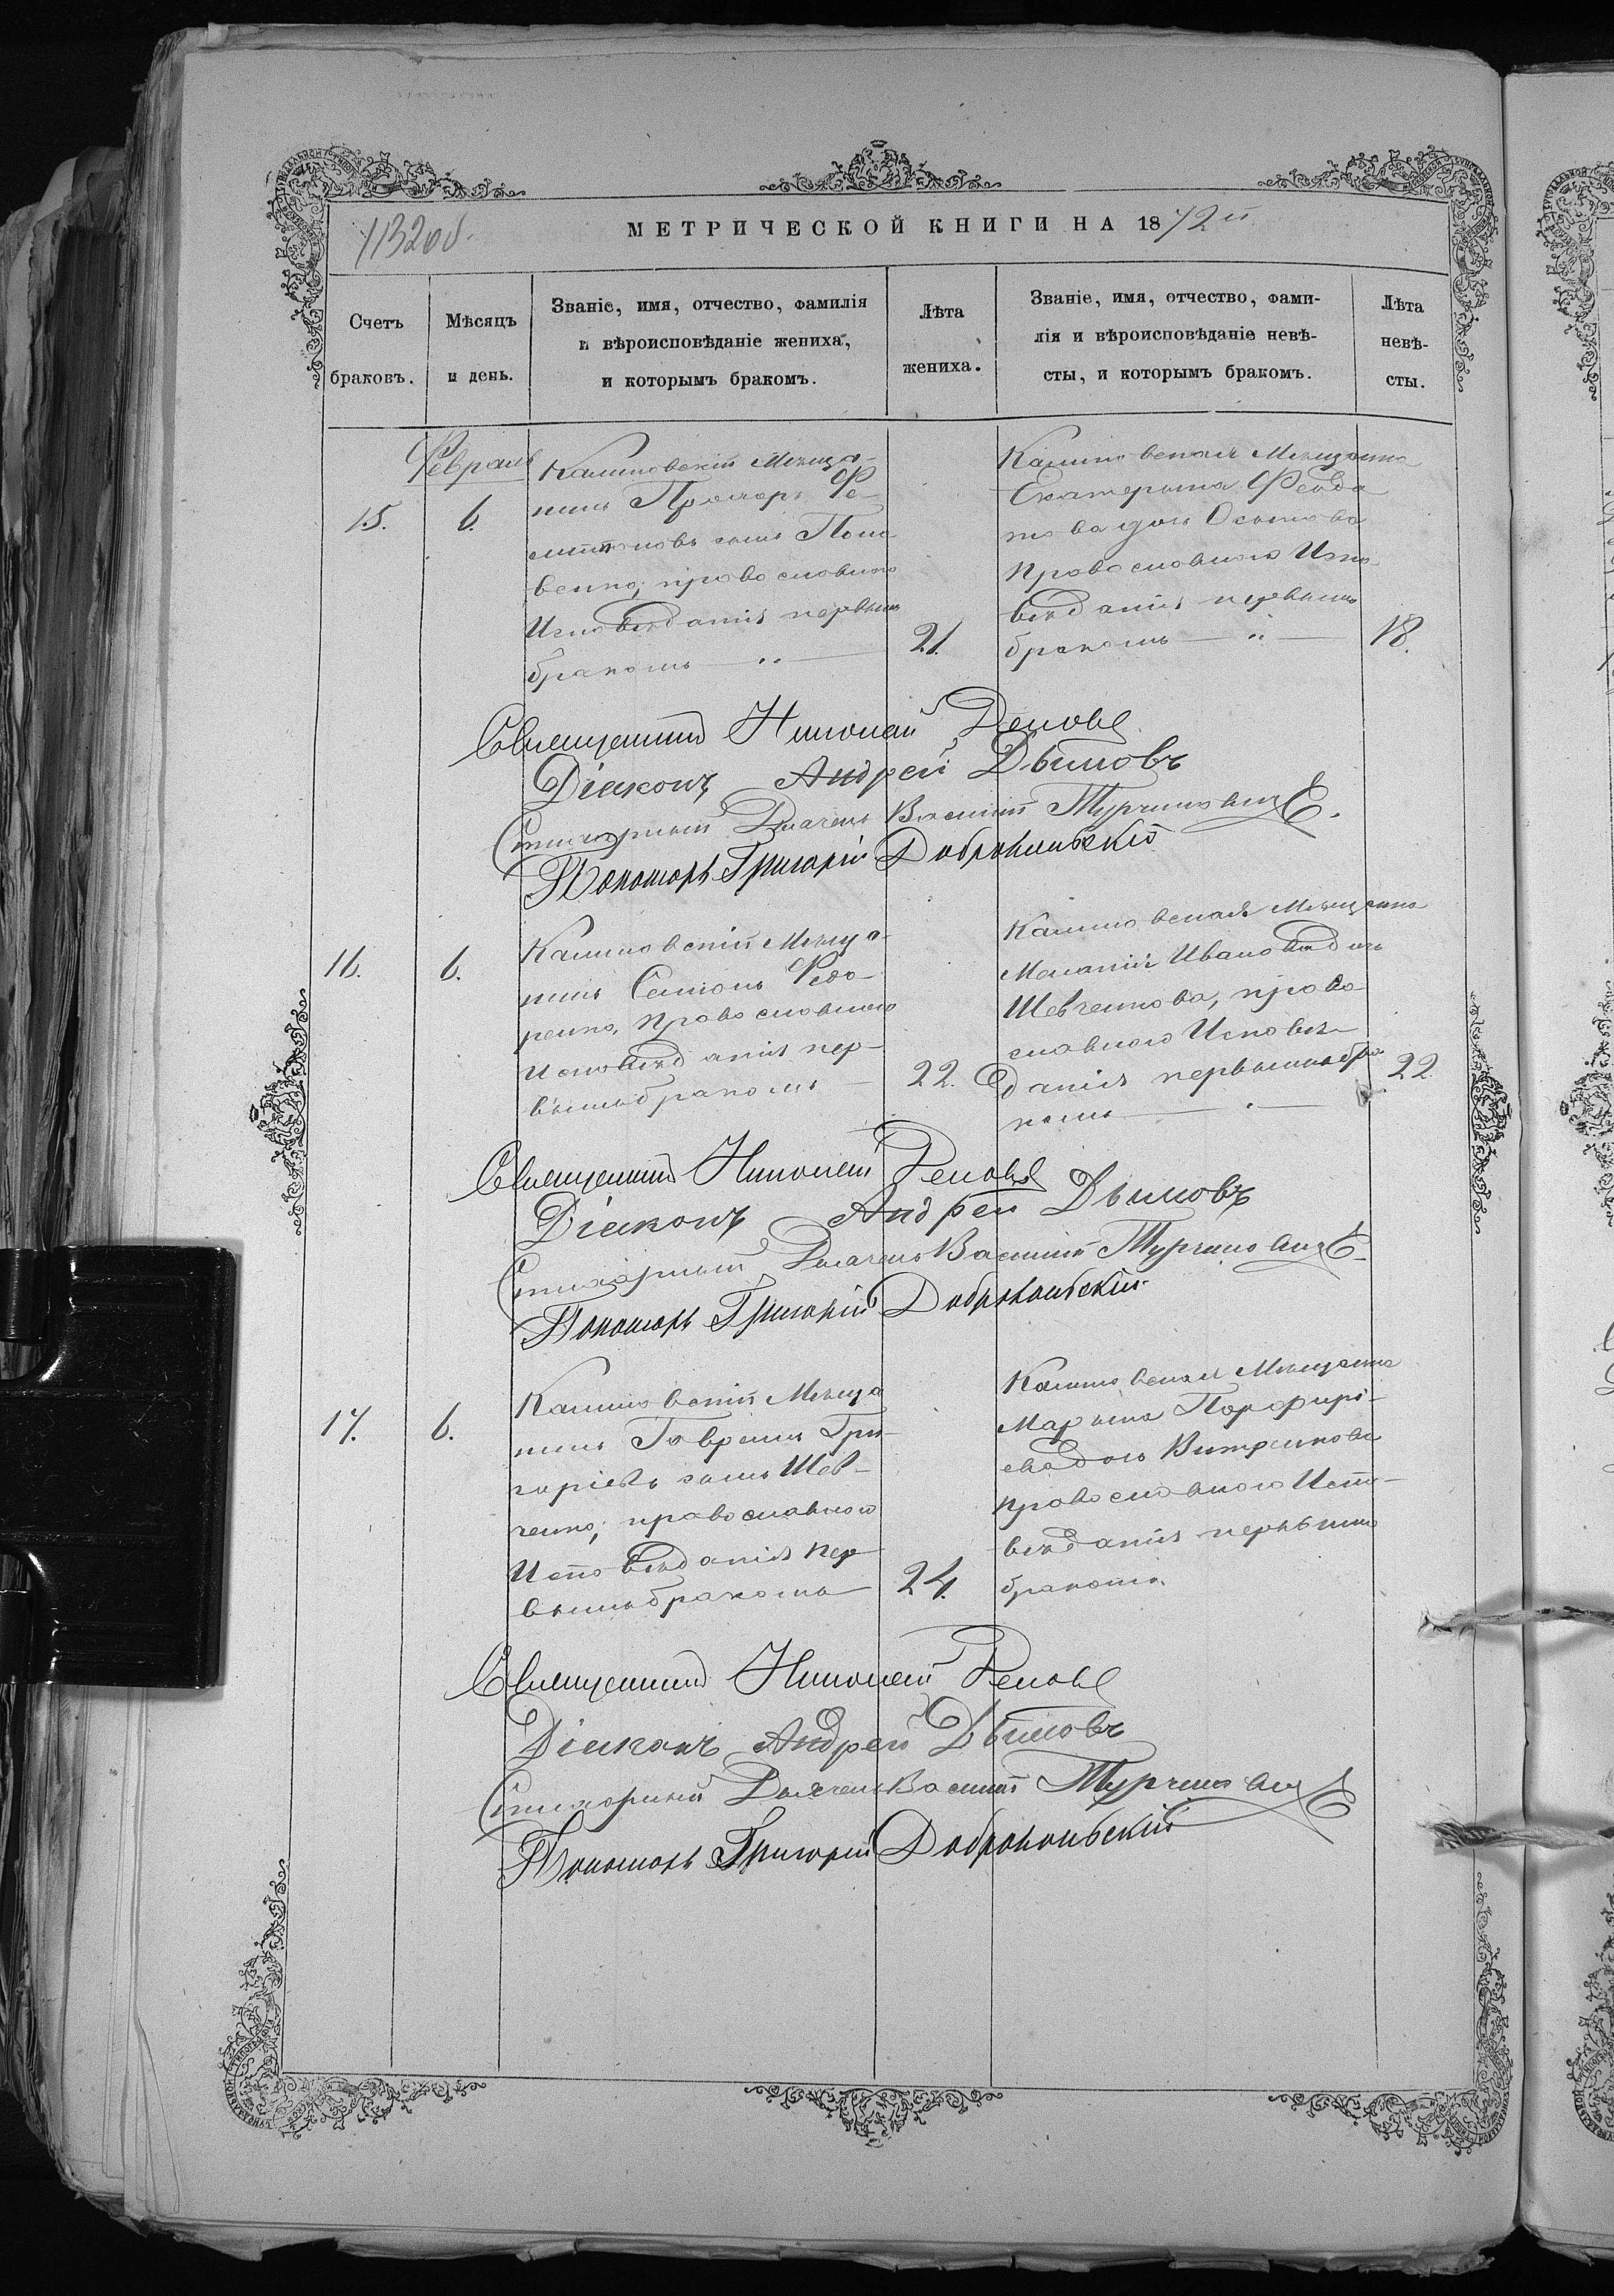 1132об.
МЕТРИЧЕСКОЙ КНИГИ НА 1872й
Счетъ браковъ.
Мѣсяцъ и день.
Званіе, имя, отчество, фамилія
и вѣроисповѣданіе жениха,
и которымъ бракомъ.
Лѣта жениха.
Званіе, имя, отчество, фами-
лія и вѣроисповѣданіе невѣ-
сты, и которымъ бракомъ.
Лѣта невѣ-
сты.
Февраль
15.
6.
Мѣща-
нинъ Прохоръ Фе-
сынъ
православнаго
Исповѣданія первымъ
бракомъ
21.
Мѣщанка
Екатерина Ѳеодо
това дочь Осипова
Православнаго Испо-
вѣданія первымъ
бракомъ
18.
Священникъ Николай
Діаконъ Андрей Дымовъ
Стихарный Дьячекъ Василій
Пономарь Григорій Добровольскій
16.
6.
Мѣща-
нинъ Семіонъ Ѳедо-
ренко, Православнаго
Исповѣданія пер-
вымъ бракомъ
22.
Мѣщанка
Меланія Иванова дочь
Шевченкова, право-
славнаго Исповѣ-
данія первымъ бра
комъ
22.
Священникъ Николай
Діаконъ Андрей Дымовъ
Стихарный Дьячекъ Василій
Пономарь Григорій Добровольскій
17.
6.
Мѣща
нинъ Гаврiилъ Гри-
горіевъ сынъ Шев-
ченко; православнаго
Исповѣданія пер
вымъ бракомъ
24.
Мѣщанка
Марѣна Порфирі-
ева дочь
православнаго Испо-
вѣданія первымъ
бракомъ.
Священникъ Николай
Діаконъ Андрей Дымовъ
Стихарный Дьячекъ Василій
Пономарь Григорій Добровольскій